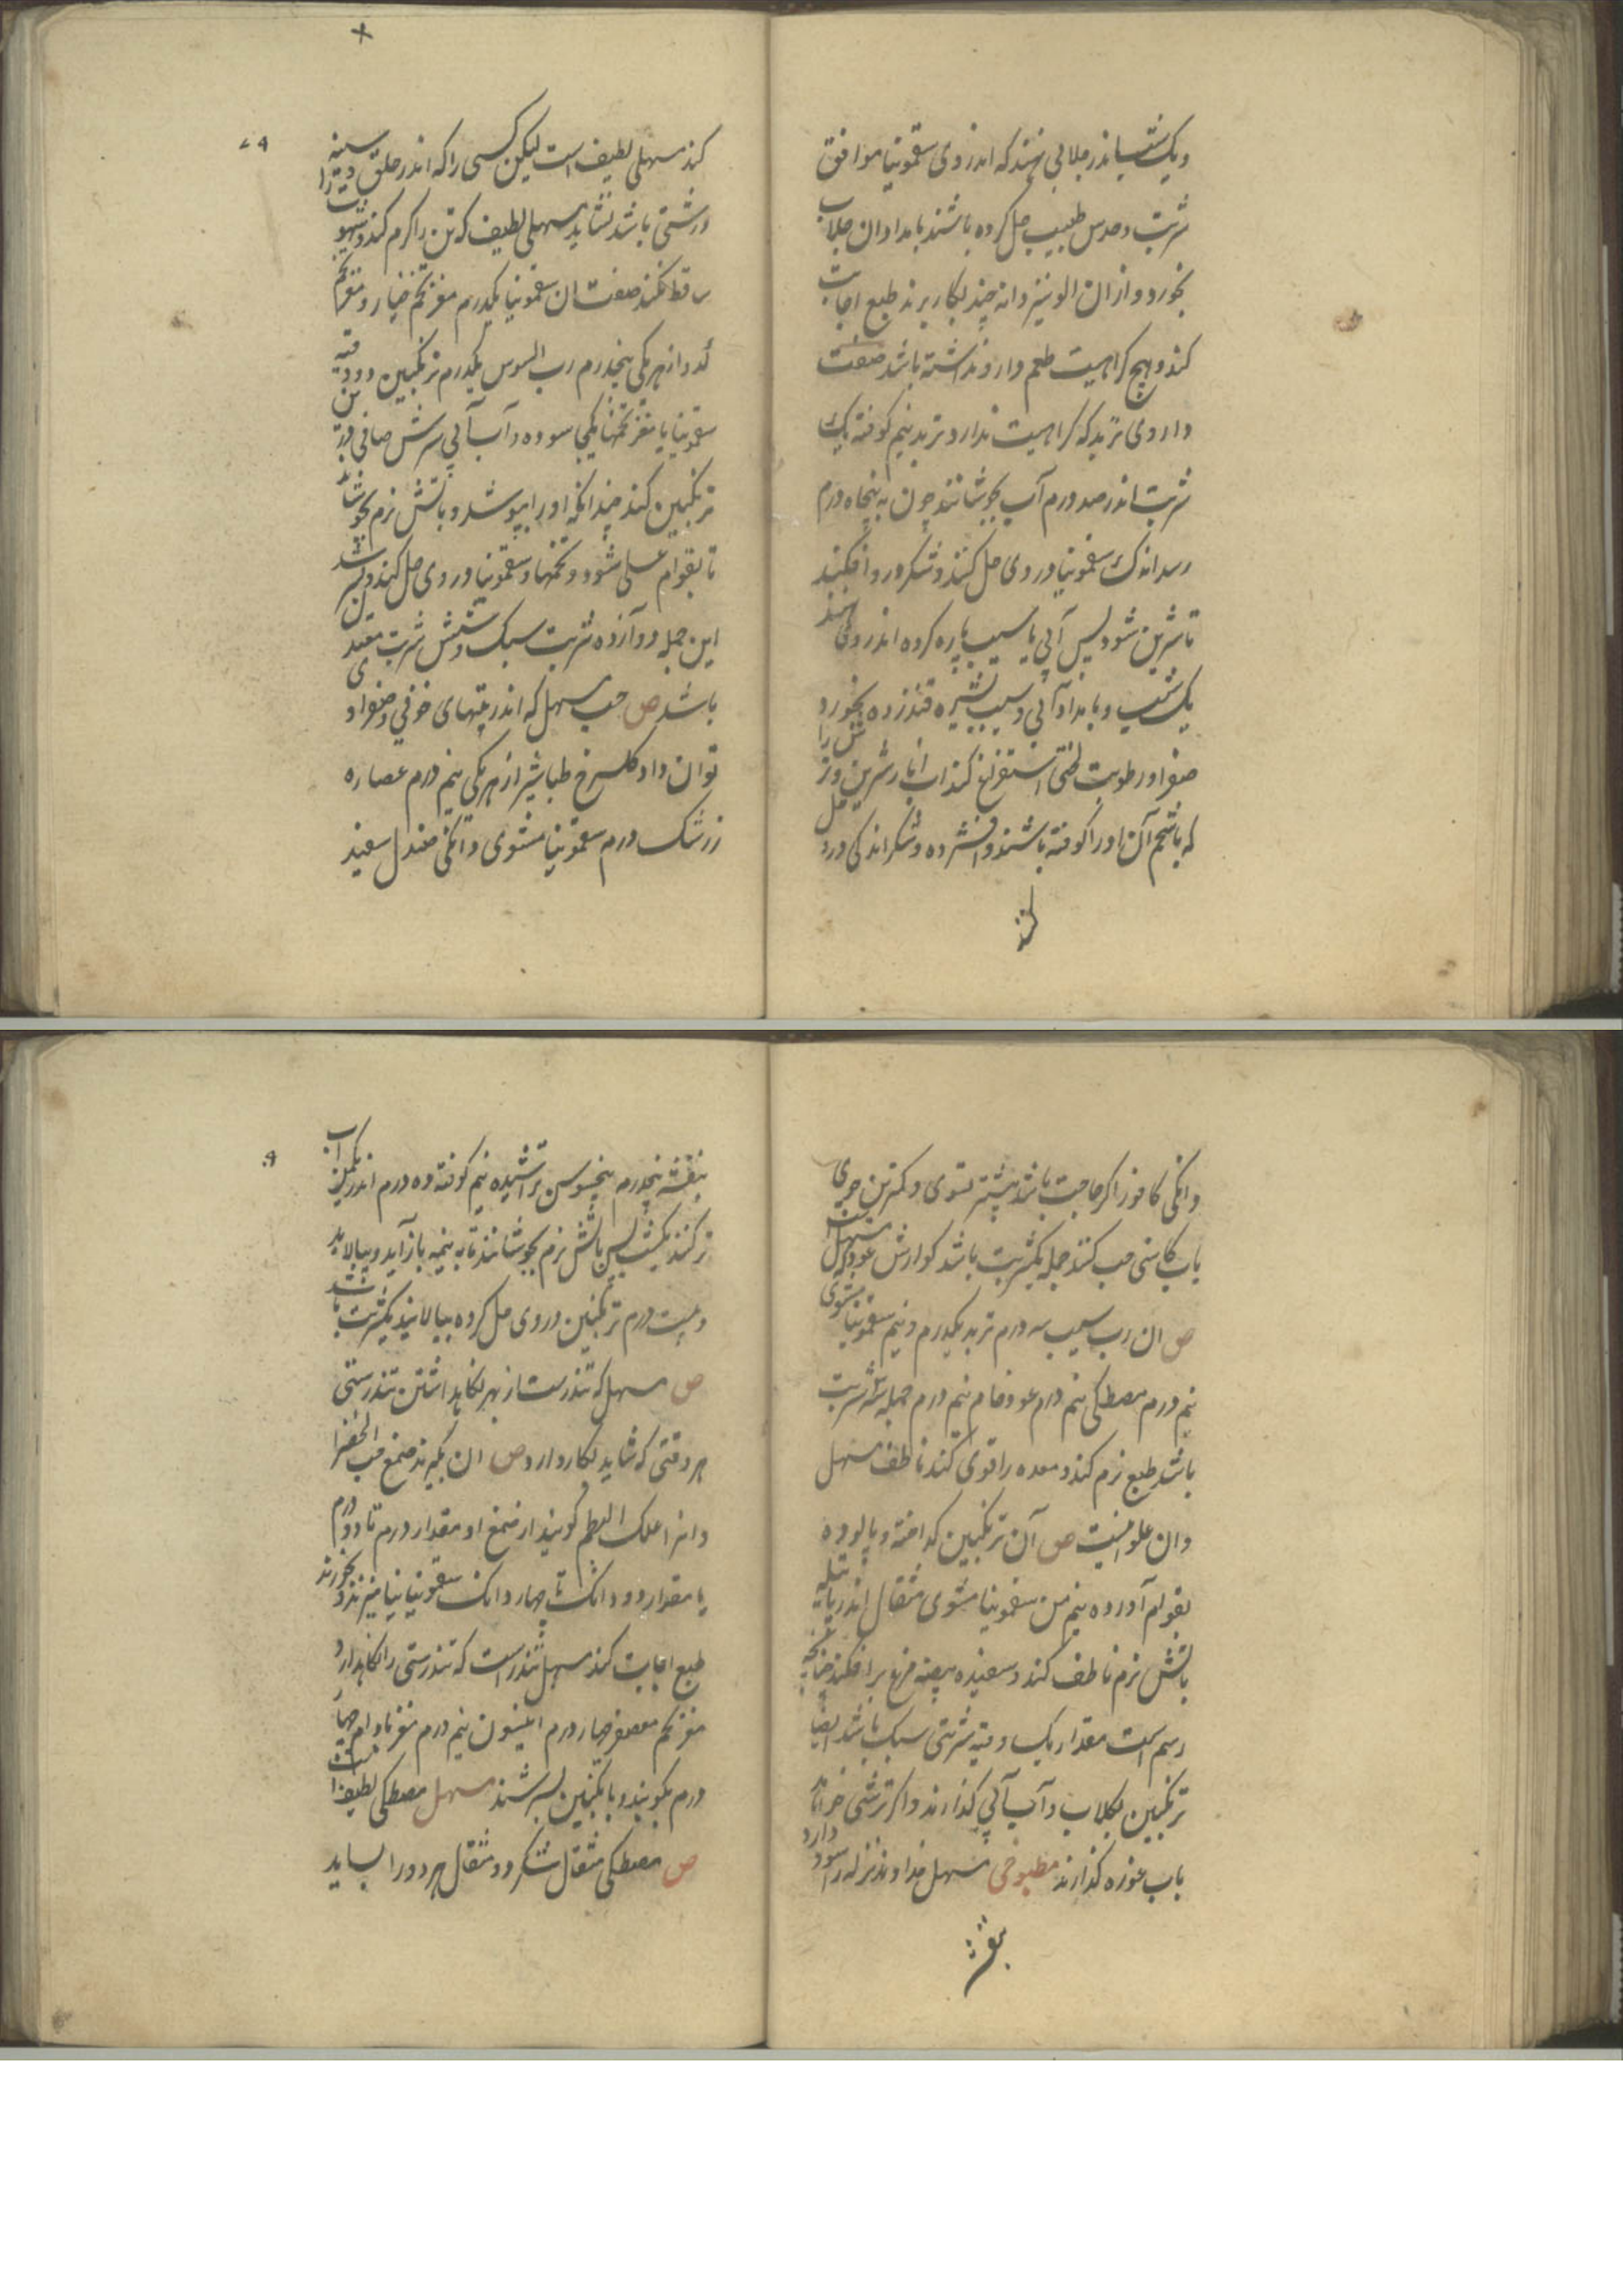 ویک شب اندر جلابی نهند که اندر وی سقمونیا موافق
شربت و حدس طبیب حل کرده باشند بامدادان جلاب
بخورد و از ان الو نیز دانه چند بکار برند طبع اجابت
کند و هیچ کراهیت طعم دارو نداشته باشد صفت
داروی تربد که کراهیت ندارد تربد نیم کوفته یک
شربت اندر صد درم آب بجوشانند چون به پنجاه درم
رسد اندک سقمونیا در وی حل کنند و شکر در وافکنند
تا شرین شود پس آبی یا سیب پاره کرده اندر وی نهند
یک شب و بامداد آبی و سیب بخورد
صفرا و رطوبت لختی استفراغ کند اب انار شرین و ترش را
که با شحم آن اورا کوفته باشند و افشرده و شکر اندکی درو حل
کند
کند مسهلی لطیف است لیکن کسی را که اندر حلق و سینه
درشتی باشد نشاید مسهلی لطیف که تن را کرم کند و شهوت را
ساقط نکند صفت ان سقمونیا یکدرم مغز تخم خیار و مغز تخم
کدو از هر یکی پنجدرم رب السوس یکدرم ترنکبین دو وقیه
سقمونیا با مغز تخمها بکجا سوده و آب آبی ترش صافی بر
ترنکبین کند چندانکه اورا بپوشد و باتش نرم بجوشاند
تا بقوام عسل شود و تخمها و سقمونیا در وی حل کنند و بسرشند
این جمله دوازده شربت سبک و شش شربت معتدل
باشد ص حب مسهل که اندر تبهای خونی و صفراوی
توان داد کلسرخ طباشیر از هر یکی نیم درم عصاره
زرشک درم سقمونیا مشوی دانکی صندل سفید
دانکی کافور اکر حاجت باشد بیشتر تسوی و کمترین جوی
باب کاسنی حب کنند جمله یکشربت باشد کوارش عود مسهل
ص ان رب سیب سه درم تربد یکدرم و نیم سقمونیا مشوی
نیم درم مصطکی نیم درم عود خام نیم درم جمله سه شربت
باشد طبع نرم کند و معده را قوی کند ناطف مسهل
وان حلوائیست ص آن ترنکبین کداخته و پالوده
بقوام آورده نیم من سقمونیا مشوی مثقال اندر پاتیله
باتش نرم ناطف کند و سفیده بیضه مرغ برافکند چنانچه
رسم است مقدار یک وقیه شربتی سبک باشد ایضا
ترنکبین بکلاب و آب آبی کذارند و اکر ترشی خواهند
باب غوره کذارند مطبوخی مسهل خداوند نزله را سود دارد
بنفشه
بنفشه پنجدرم بیخ سوسن تراشیده نیم کوفته ده درم اندر یکمن اب
تر کنند یکشب پس باتش نرم بجوشانند تا به نیمه بازآید و بپالاید
و بیست درم ترنکبین در وی حل کرده بپالایند یکشربت باشد
ص مسهل که تندرست از بهر نکاه داشتن تندرستی
هر وقتی که شاید بکار دارد ص ان بکیرند صمغ حب الخضرا
وانرا علک البطم کویند از صمغ او مقدار درم تا دو درم
یا مقدار دو دانک تا چهار دانک سقمونیا بیامیزند و بخورند
طبع اجابت کند مسهل تندرست که تندرستی را نکاهدارد
مغز تخم معصفر چهار درم انیسون نیم درم مغز بادام چهار
درم بکوبند و بانکبین بسرشند مسهل مصطکی لطیف است
ص مصطکی مثقال شکر دو مثقال هر دو را بساید